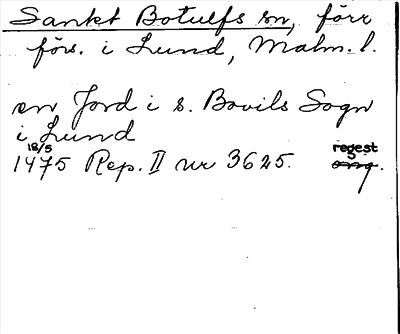 Sankt Botulfs sn, förr
förs. i Lund, Malm. l.
en Jord i s. Bovils Sogn
i Lund
18/5 regest
1475 Rep. II nr 3625. orig.